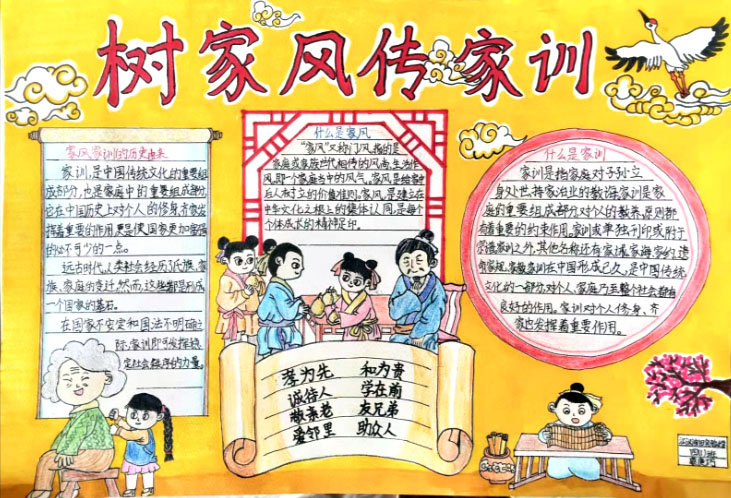 树家风传家训
家风家训的历史由来
家训,是中国传统文化的重要组
成部分,也是家庭中的重要组成部分,
它在中国历史上对个人的修身、齐家发
挥着重要的作用,更是使国家更加强
的必不可少的一点。
远古时代,人类社会经历了氏族、家
族、家庭的变迁,然而,这些都是形成
一个国家的基石。
在国家不安定和国法不明确之
际,家训即可发挥稳
定社会秩序的力量。
什么是家风
“家风”又称门风,指的是
家庭或家族世代相传的风尚、生活作
风,即一个家庭当中的风气。家风是给家中
后人树立的价值准则。家风,是建立在
中华文化之根上的集体认同,是每个
个体成长的精神足印。
什么是家训
家训是指家庭对子孙立
身处世、持家治业的教诲,家训是家
庭的重要组成部分对个人的教养、原则都
有着重要的约束作用。家训或单独刊印或附于
家谱之外,其他名称还有家诫家诲家约遗
家规、家教家训在中国形成已久,是中国传统
文化的一部分,对个人、家庭乃至整个社会都有
良好的作用。家训对个人修身、齐
家也发挥着重要作用。
孝为先 和为贵
诚待人 学在前
敬亲老 友兄弟
爱邻里 助众人